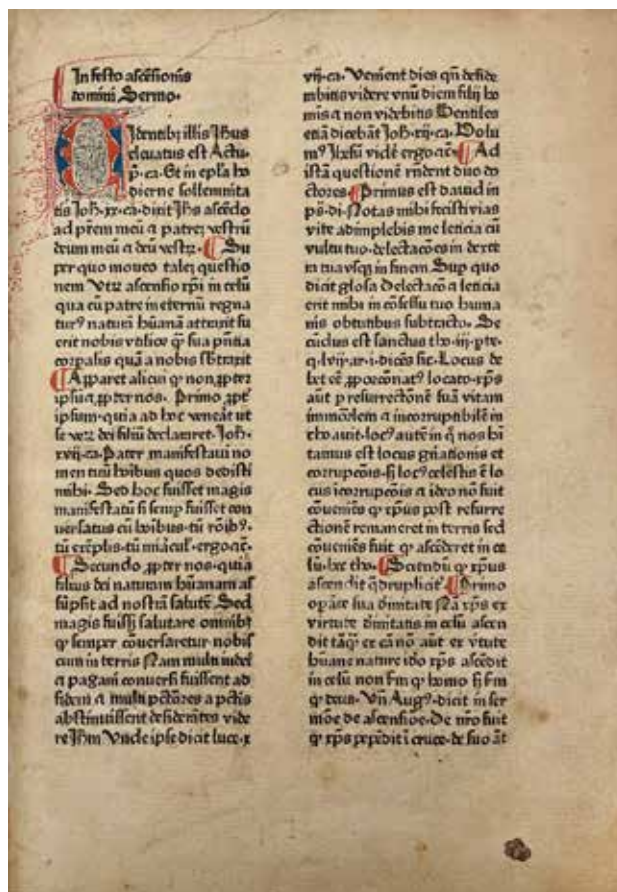 In festo ascēsionis
domini Sermo.
Uidentibꝫ illis Ihus
eleuatus est Actuꝫ
p̄. ca. Et in epl̄a ho
dierne sollemnita
tis Joh. xx. ca. dixit Jhs ascēdo
ad p̄rem meū ⁊ patreꝫ vestrū
deum meū ⁊ deū vestꝝ. Su
per quo moueo taleꝫ questio
nem Vtꝝ ascensio xp̄i in celū
qua cū patre in eternū regna
turꝰ naturā hūanā attraxit fu
erit nobis vtilior ꝙ sua p̄ntia
corpalis quā a nobis sbtraxit
Apparet alicui ꝙ non ꝓpter
ipsū ⁊ ꝓpter nos. Primo ꝓpt'
ipsum. quia ad hoc venēat ut
se veꝝ dei filiū declararet. Joh.
xvij. ca. Pater manifestaui no
men tuū hoibus quos dedisti
mihi. Sed hoc fuisset magis
manifestatū si semp fuisset con
uersatus cū hoibus. tū rōibꝰ.
tū exēplis. tū miācul'. ergo ⁊c̄.
Secundo ꝓpter nos. quia
filius dei naturam hūanam as
sūpsit ad nostrā salutē Sed
magis fuissꝫ salutare omnibꝫ
ꝙ semper cōuersaretur nobis
cum in terris Nam multi infidel'
⁊ pagani conuersi fuissent ad
fidem ⁊ multi pctōres a pctis
abstinuissent desiderātes vide
re Jhm Vnde ipse dicit luce. x
vij. ca. Venient dies qn̄ deside
rabitis videre vnū diem filij ho
minis ⁊ non videbitis Gentiles
etiā dicebāt Joh. xij. ca. Volu
mꝰ Jhesū videre ergo ⁊c̄. Ad
istā questionē rn̄dent duo do
ctores. Primus est dauid in
ps̄. di. Notas mihi fecisti vias
vite adimplebis me leticia cū
vultu tuo. delectacōes in dexte
ra tua vsqꝫ in finem Sup quo
dicit glosa Delectacō ⁊ leticia
erit mihi in cōsessu tuo huma
nis obtutibus subtracto. Se
cūdus est sanctus tho. iij. pte.
q. lvij. ar. i. dicēs sic. Locus de
bet eē ꝓporconatꝰ locato. xp̄s
aut p resurrectōnē suā vitam
immortlem ⁊ incorruptibilē in
choauit. locꝰ autē in q̄ nos hi
tamus est locus gn̄ationis et
corrupcōis. sꝫ locꝰ celestis ē lo
cus īcorrupcōis ⁊ ideo nō fuit
cōueniēs ꝙ xp̄us post resurre
ctionē remaneret in terris sed
cōueniēs fuit ꝙ ascēderet in ce
lū. hec tho. Sciendū ꝙ xp̄us
ascendit q̄druplicit' Primo
opāte sua diuītate Nā xp̄s ex
virtute diuītatis in celū ascen
dit tāqꝫ ex cā nō aut ex v̄tute
huane nature ido xp̄s ascēdit
in celū non s̄m ꝙ homo sꝫ s̄m
ꝙ deus. Vn̄ Augꝰ. dicit in ser
mōe de ascensioe. De nr̄o fuit
ꝙ xp̄s pepēdit ī cruce. de suo āt